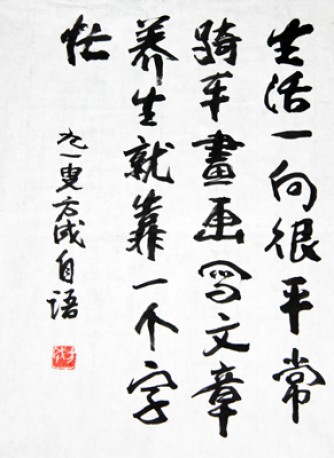 生活一向很平常
骑车畫画写文章
养生就靠一个字
忙
九一叟方成自语